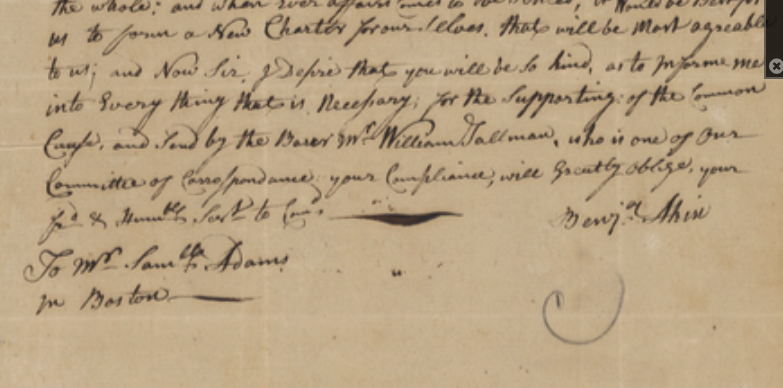 the whole; and when Ever affairs to be , it would be
us to form a New Charter for our Selves. that will be Most agreeable
to us; and Now Sir, I Desire that you will be So kind, as to Informe me
into Every thing that is Necessary; for the Supporting: of the Common
Cause, and Send by the Barer Mr. William Tallman, who is one of Our
Committee of Correspondance: your Compliance, will Greatly Oblige, your
frd & Humble Servt to Comd
Benjn Akin
To Mr Samll Adams
In Boston